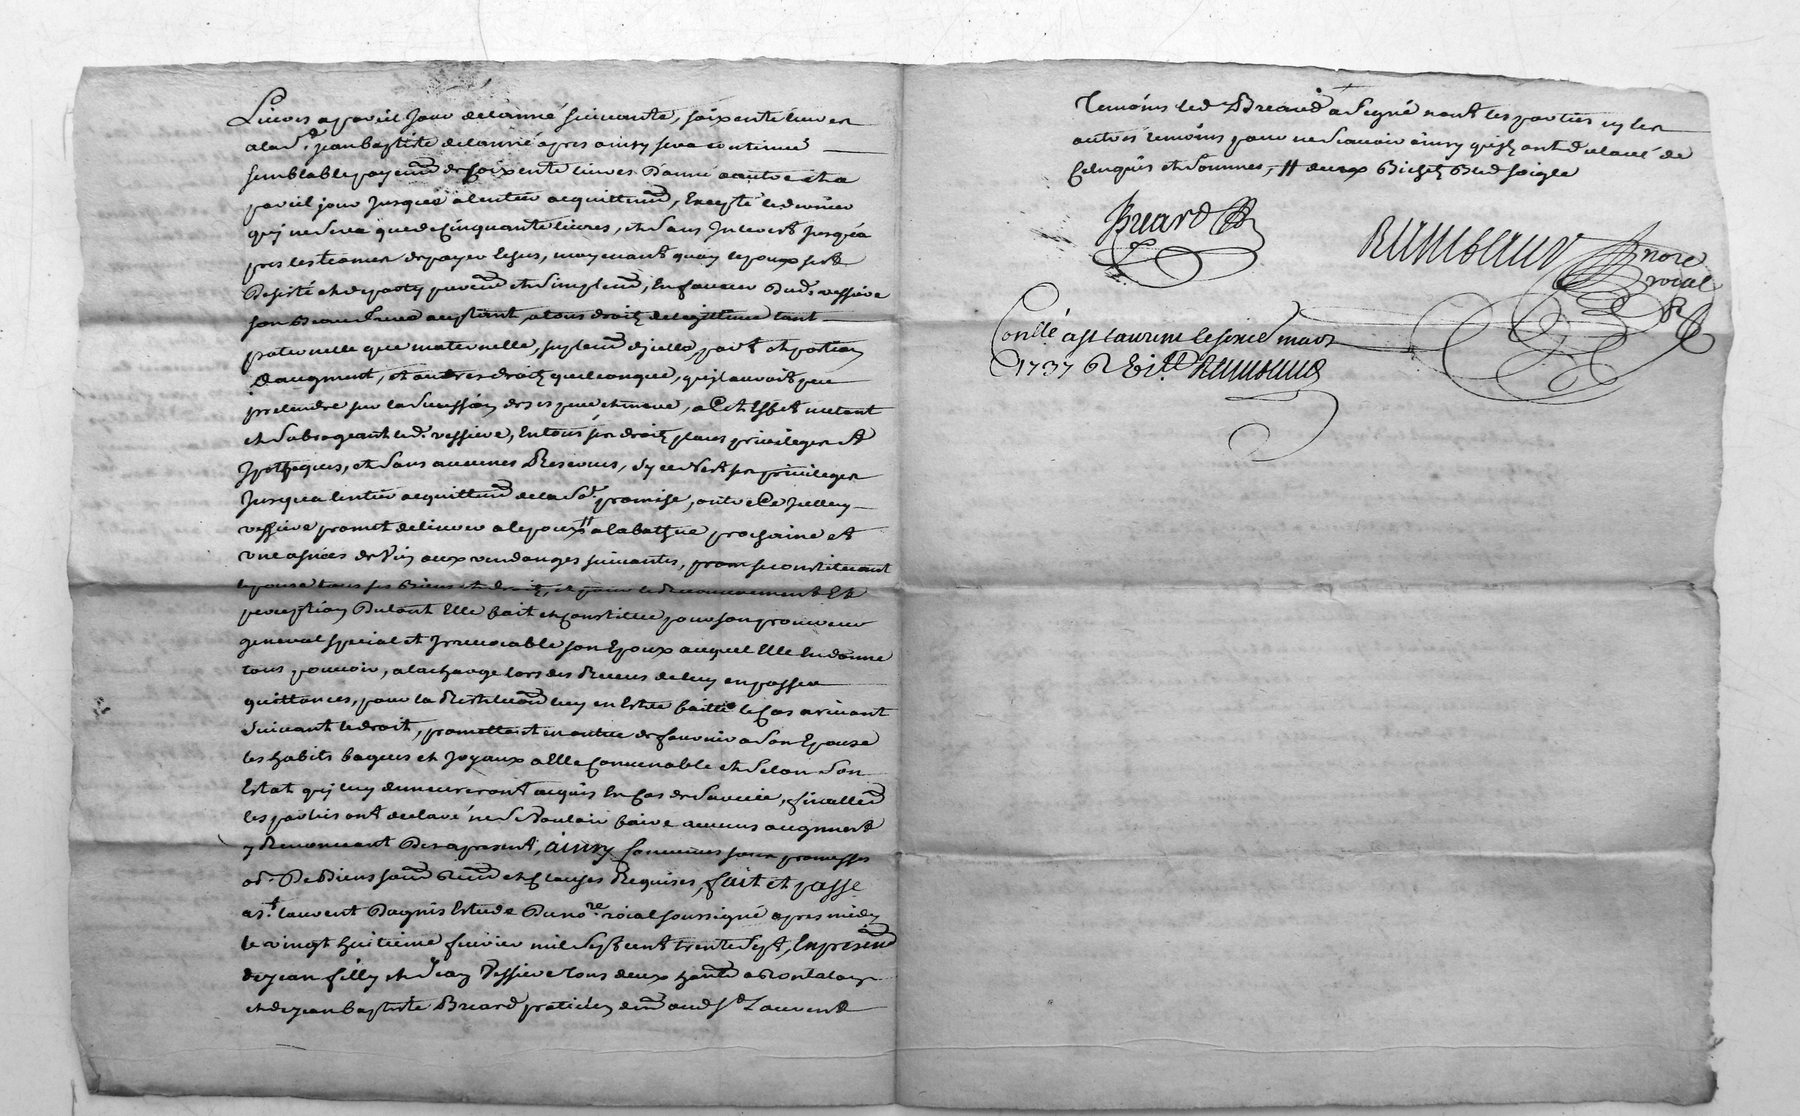 Livres a pareil jour de lanné suivante, soixente livres
a la st jean baptiste de lanné apres ainsy sera continué
semblable payemt de soixente livres d'anné a autre et a
pareil jour jusques a lentier acquittemt, Excepté le dernier
quj ne sera que de Cinquante livres, et sans Interest jusqu'a
pres les termes de payer lesqs, moyenant quoy lepoux sest
Desisté et departy puremt et simplemt, En faveur Dud. vessiere
son Beau frere aceptant, a tous droitz de legittime tant
paternelle que maternelle, suplemt dicelle, part et portion
D'augment, et autres droitz quelconque, quj lauroit peu
pretendre sur la sucession de ses pere et mere, a Cet Effet metant
et subrogeant led. vessiere, En tous ses droitz places privileges et
Jpotheques, et sans aucunes Reserves, sy ce nest ses privileges
Jusqu'a lentier acquittemt de la so. promise, outre Ce Jcelluy
vessiere promet delivrer a lepoux # a la bathue prochaine et
une asnées de vin aux vendanges suivantes, se constituant
lepouse tous ses Biens et droitz, et pour le Recouvrement Et
perception Dutout Elle fait et Constitue pour son procureur
general special et Jrrevocable son Epoux auquel Elle En donne
tous pouvoir, a la charge lors des Receus de luy en passer
quittances, pour la Restitution luy en Estre faitte le Cas arrivant
suivant le droit, promettant en outre de fournir a son Epouse
les habits bagues et Joyaux a Elle Convenable et selon son
Estat quj luy demeureront acquis En Cas de survie, finallemt
les parties ont declaré ne vouloir faire aucuns augment
y Renonceant Des apresent, ainsy Convenus sous promesses
obn. De Biens soumn Renn et Clauses Requises, fait et passé
a st laurent Dagnis Estude Du nore. roial soussigné apres midy
le vingt huitieme fevrier mil sept cent trente sept, En presence
de jean filly et Jean Vessiere tous deux habts a Rontalon
et de jean baptiste Breard praticien demt aud st Laurent
Temoins led Breard a signé non les parties ny les
autres temoins pour ne scavoir ainsy qu'ilz ont declaré de
Ce Enquis et sommes, # deux Bichetz Bled soigle
Breard
Rambaud
nore
roial
Conllé a st laurent le seize mars
1737 R Rambaud